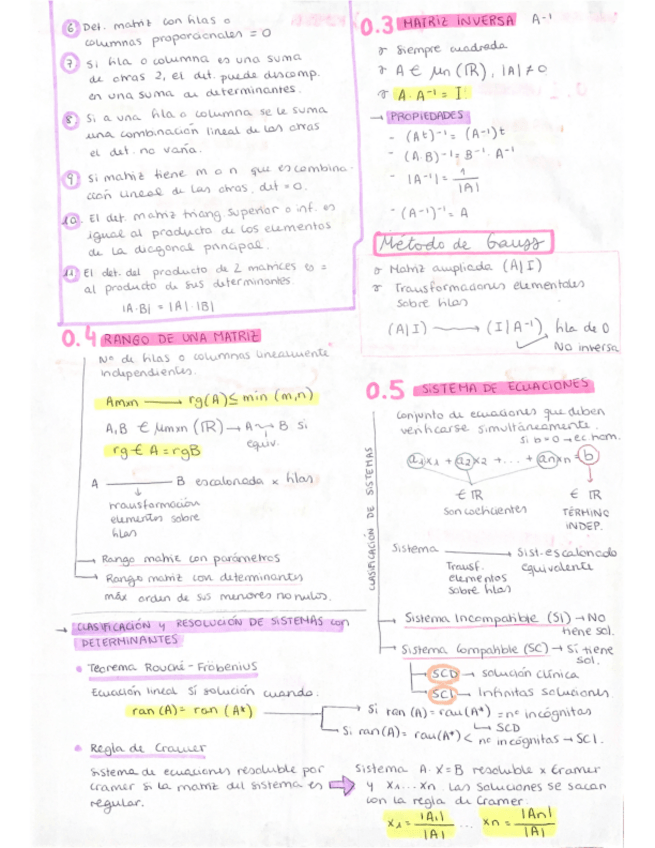 6 Det. matriz con filas o
columnas proporcionales = 0
7 Si fila o columna es una suma
de otras 2, el det. puede descomp.
en una suma de determinantes.
8 Si a una fila o columna se le suma
una combinación lineal de las otras
el det. no varía.
9 Si matriz tiene m o n que es combina-
ción lineal de las otras, det = 0.
10. El det. matriz triang. superior o inf. es
igual al producto de los elementos
de la diagonal principal.
11 El det. del producto de 2 matrices es =
al producto de sus determinantes.
|A·B| = |A|·|B|
0.3 MATRIZ INVERSA A⁻¹
Siempre cuadrada
A ∈ Mn (ℝ), |A| ≠ 0
A·A⁻¹ = I
→ PROPIEDADES
- (At)⁻¹ = (A⁻¹)t
- (A·B)⁻¹ = B⁻¹·A⁻¹
- |A⁻¹| = 1/|A|
- (A⁻¹)⁻¹ = A
Método de Gauss
Matriz ampliada (A|I)
Transformaciones elementales
sobre filas
(A|I) → (I|A⁻¹) fila de 0
No inversa
0.4 RANGO DE UNA MATRIZ
Nº de filas o columnas linealmente
independientes.
Amxn → rg(A) ≤ min (m,n)
A,B ∈ Mmxn (ℝ) → A ~ B si
equiv.
rg ∈ A = rgB
A — B escalonada x filas
↓
transformación
elementos sobre
filas
→ Rango matriz con parámetros
→ Rango matriz con determinantes
máx orden de sus menores no nulos.
0.5 SISTEMA DE ECUACIONES
Conjunto de ecuaciones que deben
verificarse simultáneamente.
si b=0 → ec hom.
a1x1 + a2x2 + ... + anxn = b
∈ ℝ ∈ ℝ
son coeficientes TÉRMINO
INDEP.
CLASIFICACIÓN DE SISTEMAS
Sistema → Sist. escalonado
Transf. equivalente
elementos
sobre filas
→ Sistema Incompatible (SI) → NO
tiene sol.
→ Sistema Compatible (SC) → Sí tiene
sol.
→ SCD → solución única
→ SCI → Infinitas soluciones.
→ CLASIFICACIÓN Y RESOLUCIÓN DE SISTEMAS con
DETERMINANTES
• Teorema Rouché-Fröbenius
Ecuación lineal Sí solución cuando:
ran (A) = ran (A*)
→ Si ran (A) = rau(A*) = nº incógnitas
↳ SCD
→ Si ran(A) = rau(A*) < nº incógnitas → SCI.
• Regla de Cramer
Sistema de ecuaciones resoluble por
Cramer si la matriz del sistema es
regular.
⇨ Sistema A·X=B resoluble x Cramer
y X1...Xn. Las soluciones se sacan
con la regla de Cramer:
X1 = |A1|/|A| ... Xn = |An|/|A|